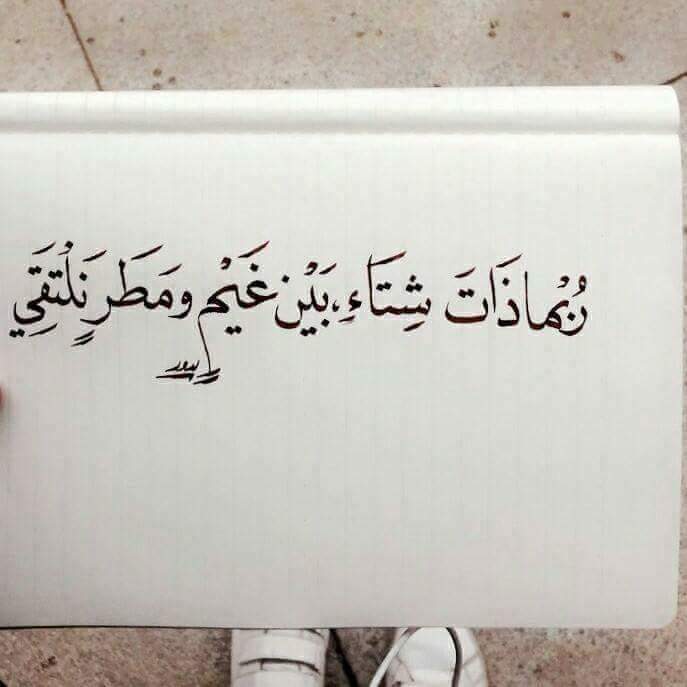 رُبْما ذَاتَ شِتَاءِ، بَيْن غَيْمٍ ومَطَرٍ نَلْتقَي